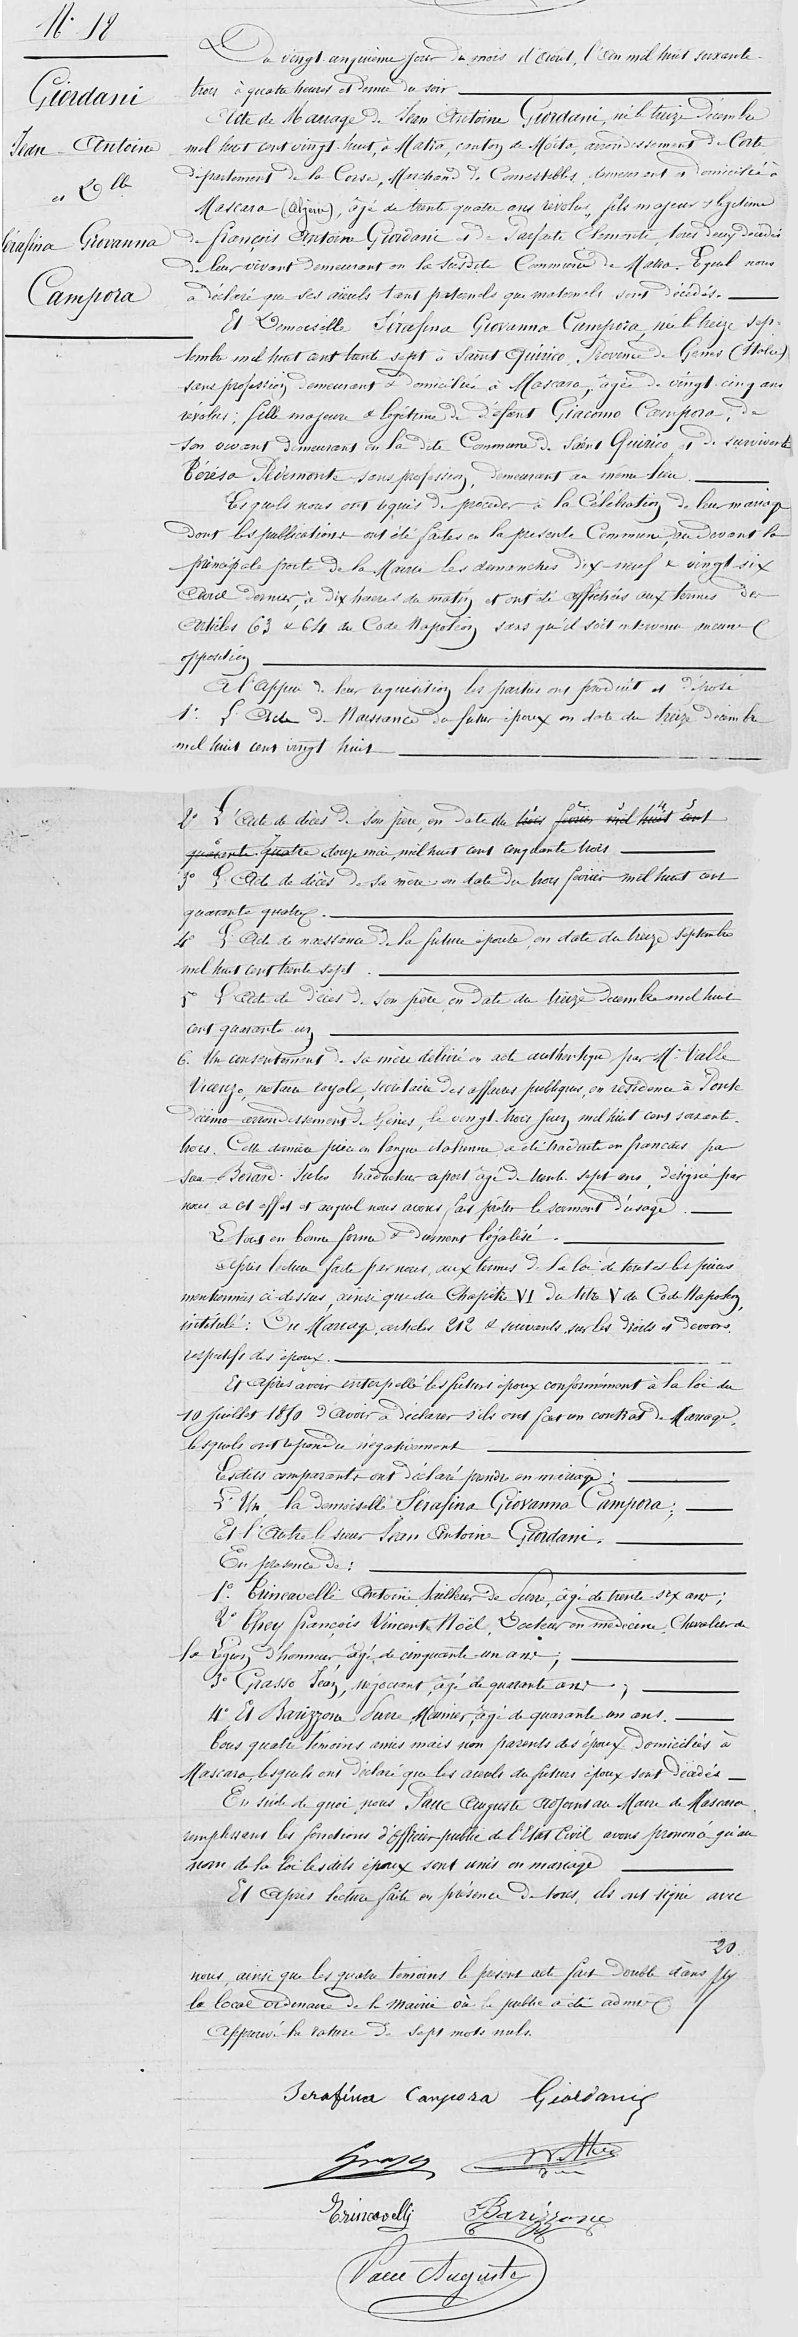 N° 18
Giordani
Jean Antoine
et Dlle
Serafina Giovanna
Campora
Du vingt cinquième jour du mois d'Août, l'An mil huit soixante
trois à quatre heures et demie du soir
Acte de Mariage de Jean Antoine Giordani, né le treize Décembre
mil huit cent vingt huit, à Matra, canton de Moïta, arrondissement de Corte
département de la Corse, Marchand de Comestibles, demeurant et domicilié à
Mascara (Algérie), âgé de trente quatre ans révolus, fils majeur & légitime
de François Antoine Giordani et de Parfaite Clementi tous deux décédés
de leur vivant demeurant en la susdite Commune de Matra. Lequel nous
a déclaré que ses aïeuls tant paternels que maternels sont décédés.
Et Demoiselle Sérafina Giovanna Campora, née le treize sep-
tembre mil huit cent trente sept à Saint Quirico, Province de Gênes (Italie)
sans profession demeurant & domiciliée à Mascara, âgée de vingt cinq ans
révolus; fille majeure & légitime de défunt Giacomo Campora, de
son vivant demeurant en la dite Commune de Saint Quirico, et de survivante
Térésa Piémonte sans profession, demeurant au même lieu.
Lesquels nous ont requis de procéder à la Célébration de leur mariage
dont les publications ont été faites en la présente Commune, devant la
principale porte de la Mairie les dimanches dix-neuf & vingt six
Avril dernier, à dix heures du matin et ont été affichées aux termes des
Articles 63 & 64 du Code Napoléon sans qu'il soit intervenu aucune
opposition
A l'appui de leur réquisition les parties ont produit et déposé
1° L'Acte de Naissance du futur époux en date du treize décembre
mil huit cent vingt huit
2° L'Acte de décès de son père, en date du trois février mil huit cent
quarante quatre douze mai mil huit cent cinquante trois
3° L'Acte de décès de sa mère en date du trois février mil huit cent
quarante quatre.
4° L'Acte de naissance de la future épouse, en date du treize septembre
mil huit cent trente sept.
5° L'Acte de décès de son père, en date du treize décembre mil huit
cent quarante un
6. Un consentement de sa mère délivré en acte authentique par Mr. Valle
Vicenzo, notaire royale, secrétaire des affaires publiques, en résidence à Ponte
Decimo arrondissement de Gênes, le vingt trois Juin mil huit cent soixante-
trois. Cette dernière pièce en langue italienne a été traduite en français par
Sieur Bérard Jules traducteur expert âgé de trente sept ans, désigné par
nous à cet effet et auquel nous avons fait prêter le serment d'usage.
Le tout en bonne forme & dûment légalisé.
Après lecture faite par nous, aux termes de la loi, de toutes les pièces
mentionnées ci-dessus, ainsi que du Chapitre VI du titre V du Code Napoléon,
intitulé: Du Mariage, articles 212 & suivants, sur les Droits et Devoirs
respectifs des époux.
Et Après avoir interpellé les futurs époux conformément à la loi du
10 Juillet 1850 d'avoir à déclarer s'ils ont fait un contrat de Mariage,
lesquels ont répondu négativement
Lesdits comparants ont déclaré prendre en mariage:
L'Un la demoiselle Sérafina Giovanna Campora;
Et l'Autre le sieur Jean Antoine Giordani.
En présence de:
1° Trincavelli Antoine tailleur de Pierre, âgé de trente six ans;
2° François Vincent Noël, Docteur en médecine, Chevalier de
la Légion d'honneur âgé de cinquante un ans;
3° Grasso Jean, négociant, âgé de quarante ans;
4° Et Barizzone Pierre, Meunier, âgé de quarante un ans.
Tous quatre témoins amis mais non parents des époux, domiciliés à
Mascara, lesquels ont déclaré que les aïeuls du futur époux sont décédés
En suite de quoi nous Auguste Adjoint au Maire de Mascara
remplissant les fonctions d'Officier public de l'Etat Civil avons prononcé qu'au
nom de la loi lesdits époux sont unis en mariage
Et après lecture faite en présence de tous, ils ont signé avec
20
nous, ainsi que les quatre témoins le présent acte fait double dans
le local ordinaire de la mairie où le public a été admis
Approuvé la rature de sept mots nuls.
Serafina Campora Giordani
Grasso
Trincavelli Barizzone
Auguste